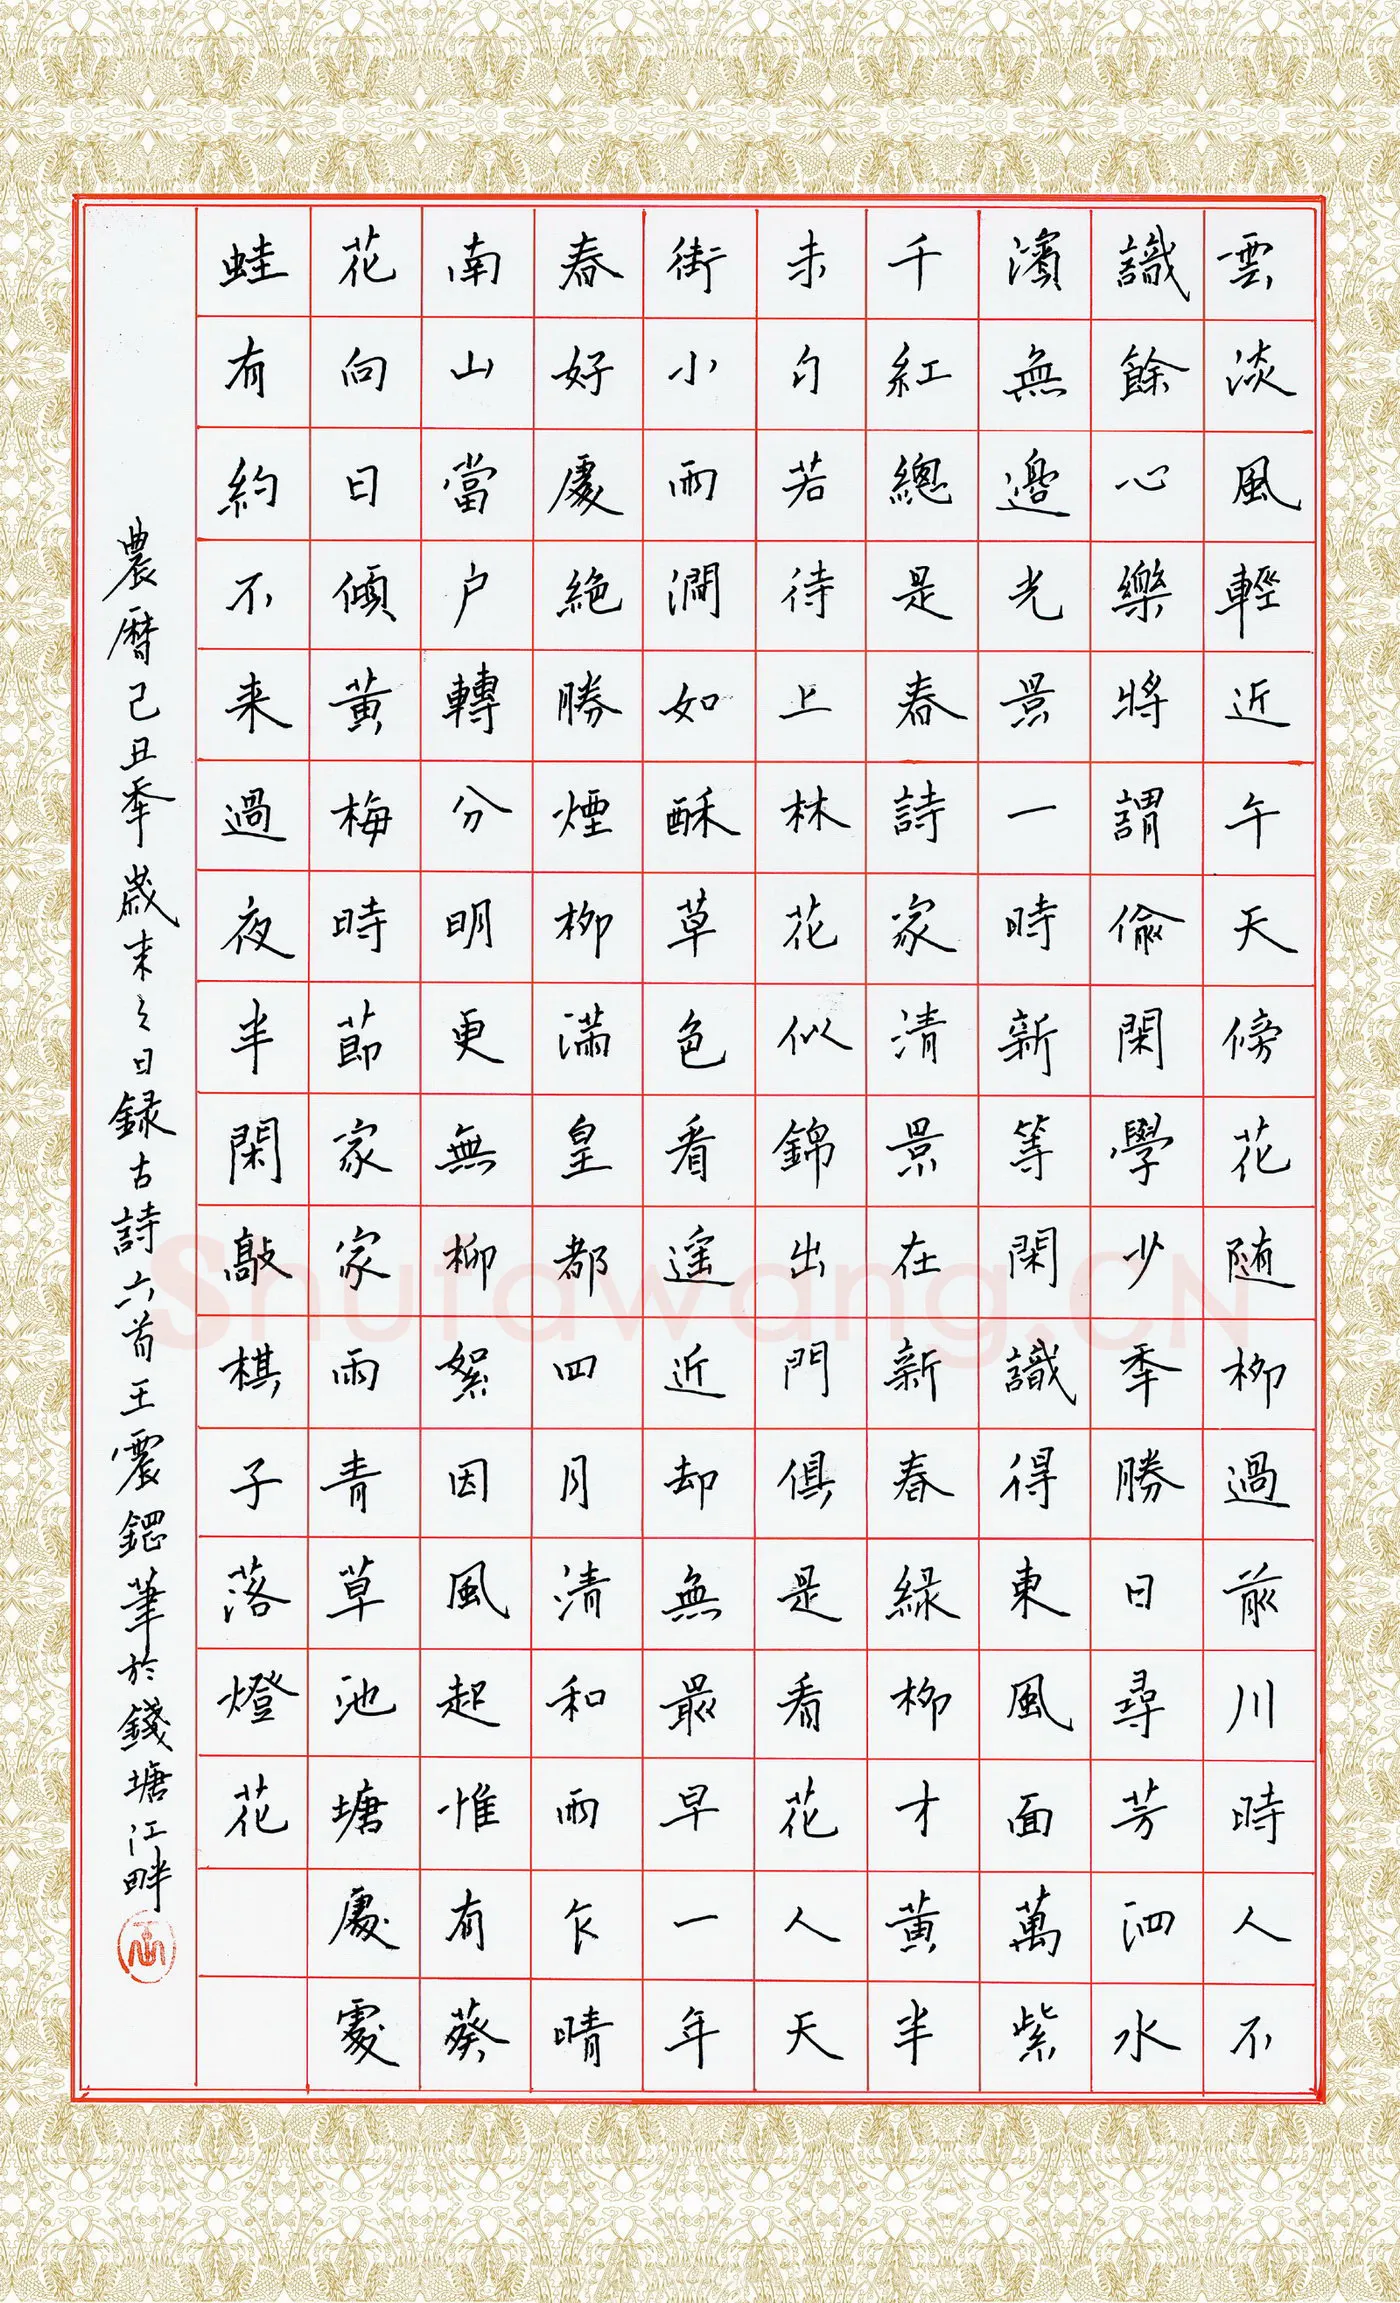 雲淡風輕近午天傍花随柳過前川時人不
識餘心樂將謂偷閑學少年勝日尋芳泗水
濱無邊光景一時新等閑識得東風面萬紫
千紅總是春詩家清景在新春綠柳才黃半
未勻若待上林花似錦出門俱是看花人天
街小雨潤如酥草色看遥近却無最早一年
春好處絕勝煙柳滿皇都四月清和雨乍晴
南山當户轉分明更無柳絮因風起惟有葵
花向日傾黃梅時節家家雨青草池塘處處
蛙有約不来過夜半閑敲棋子落燈花
農曆己丑年歲末之日録古詩六首王震鍶筆於錢塘江畔
Shufawang.CN